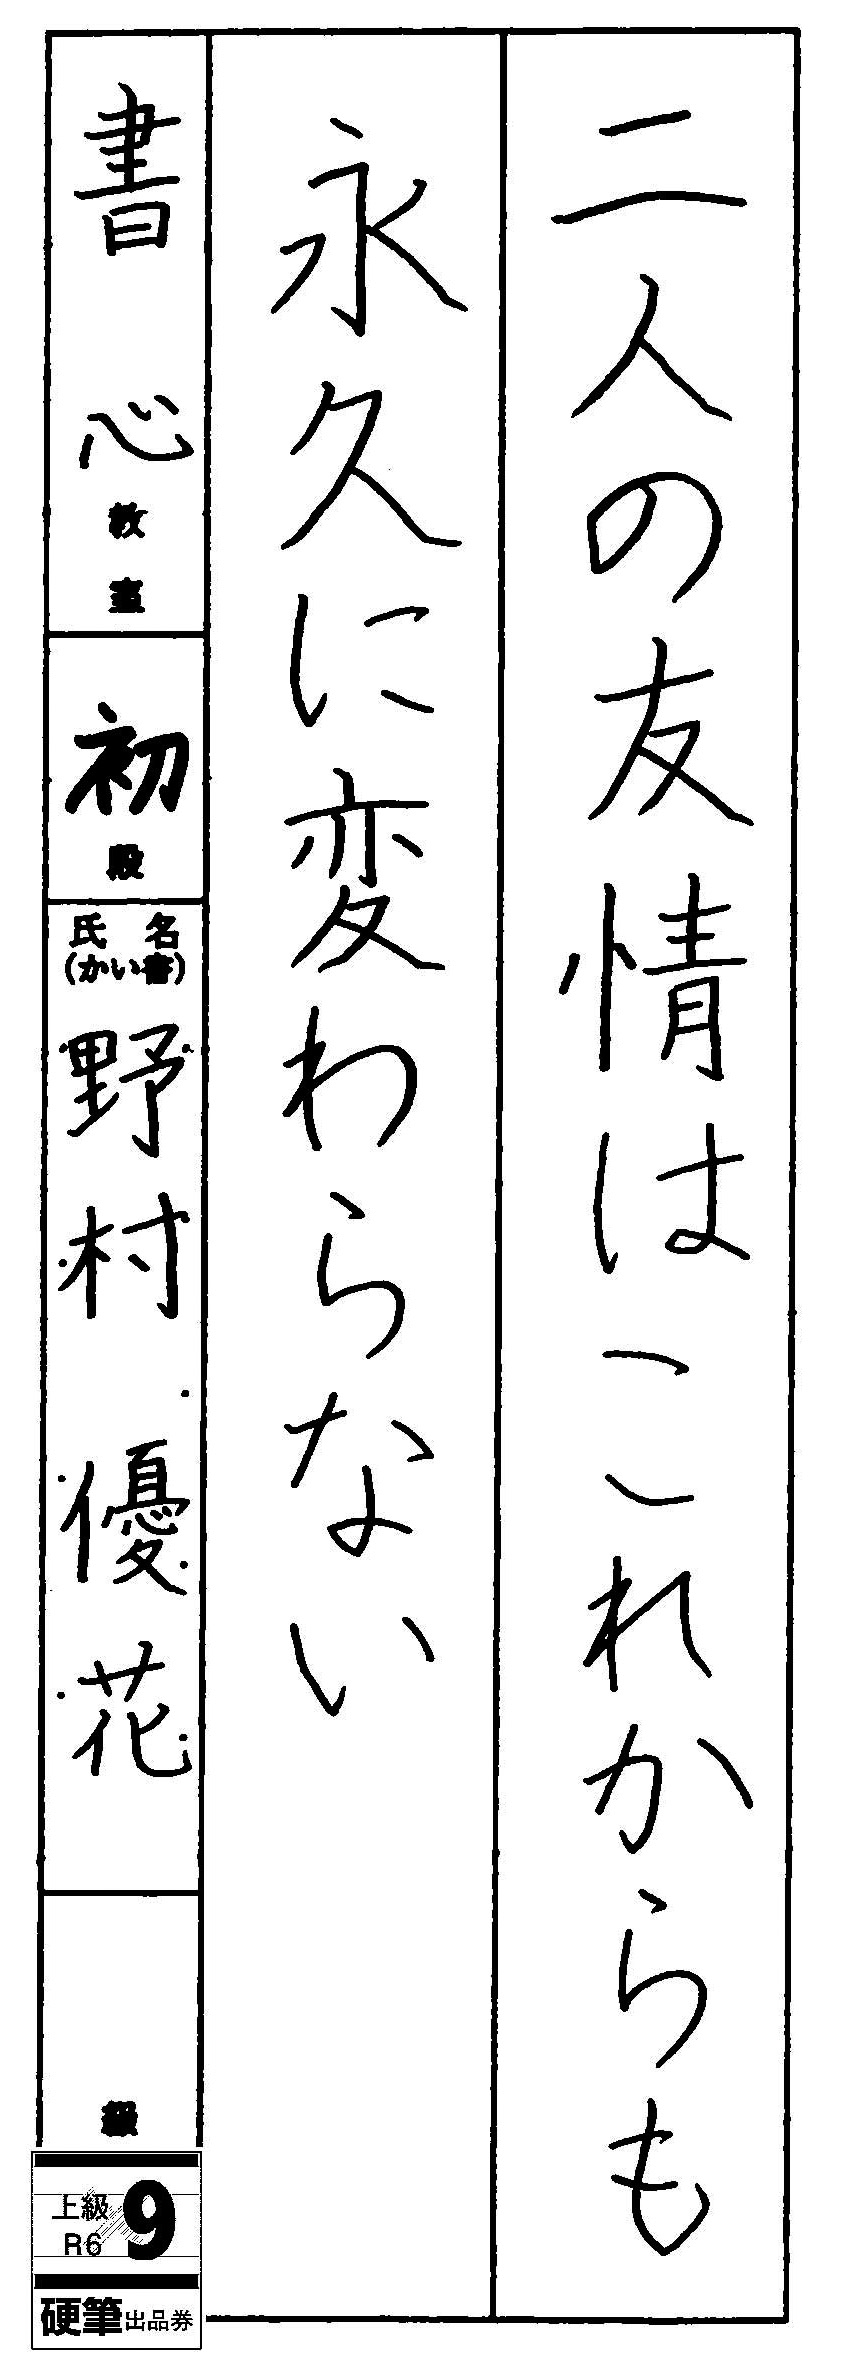 二人の友情はこれからも
永久に変わらない
書心教室
初段
氏名
(かい書)
野村優花
級
上級
R6
9
硬筆出品券